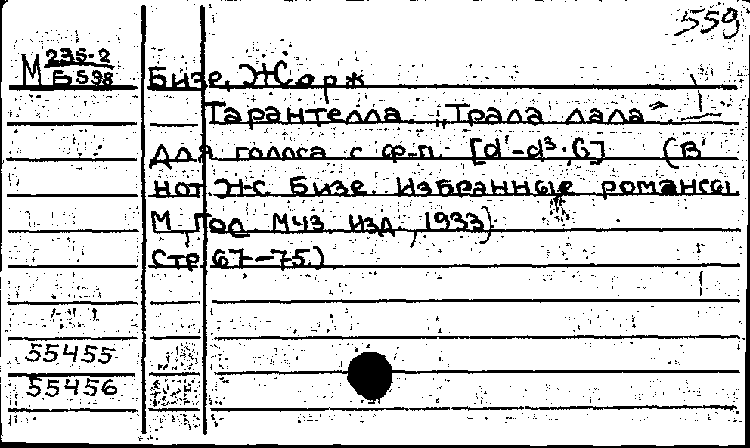 559
М 235-2
Б 598
Бизе, Жорж
Тарантелла. „Трала лала"
для голоса с ф-п. [d'-d³; G] (В
нот Ж. Бизе. Избранные романсы
М., Гос. Муз. изд., 1933)
стр 67-75.)
55455
55456